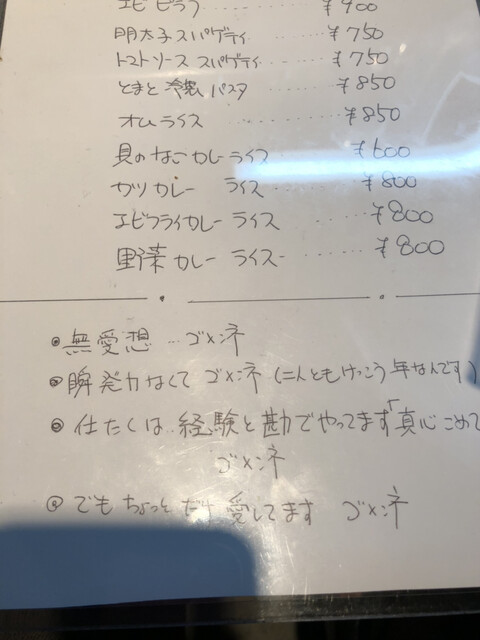 エビピラフ ¥900
明太子スパゲティ ..... ¥750
トマトソース スパゲティ .... ¥750
とまと冷製パスタ ...... ¥850
オムライス ........ ¥850
具のなこカレーライス ¥600
カツカレー ライス ...... ¥800
エビフライカレー ライス ...... ¥800
野菜カレー ライス ...... ¥800
◎無愛想...ゴメンネ
◎瞬発力なくて ゴメンネ(二人ともけっこう年なんです)
◎仕たくは 経験と勘でやってます「真心こめて
ゴメンネ
◎でもちょっとだけ愛してます ゴメンネ